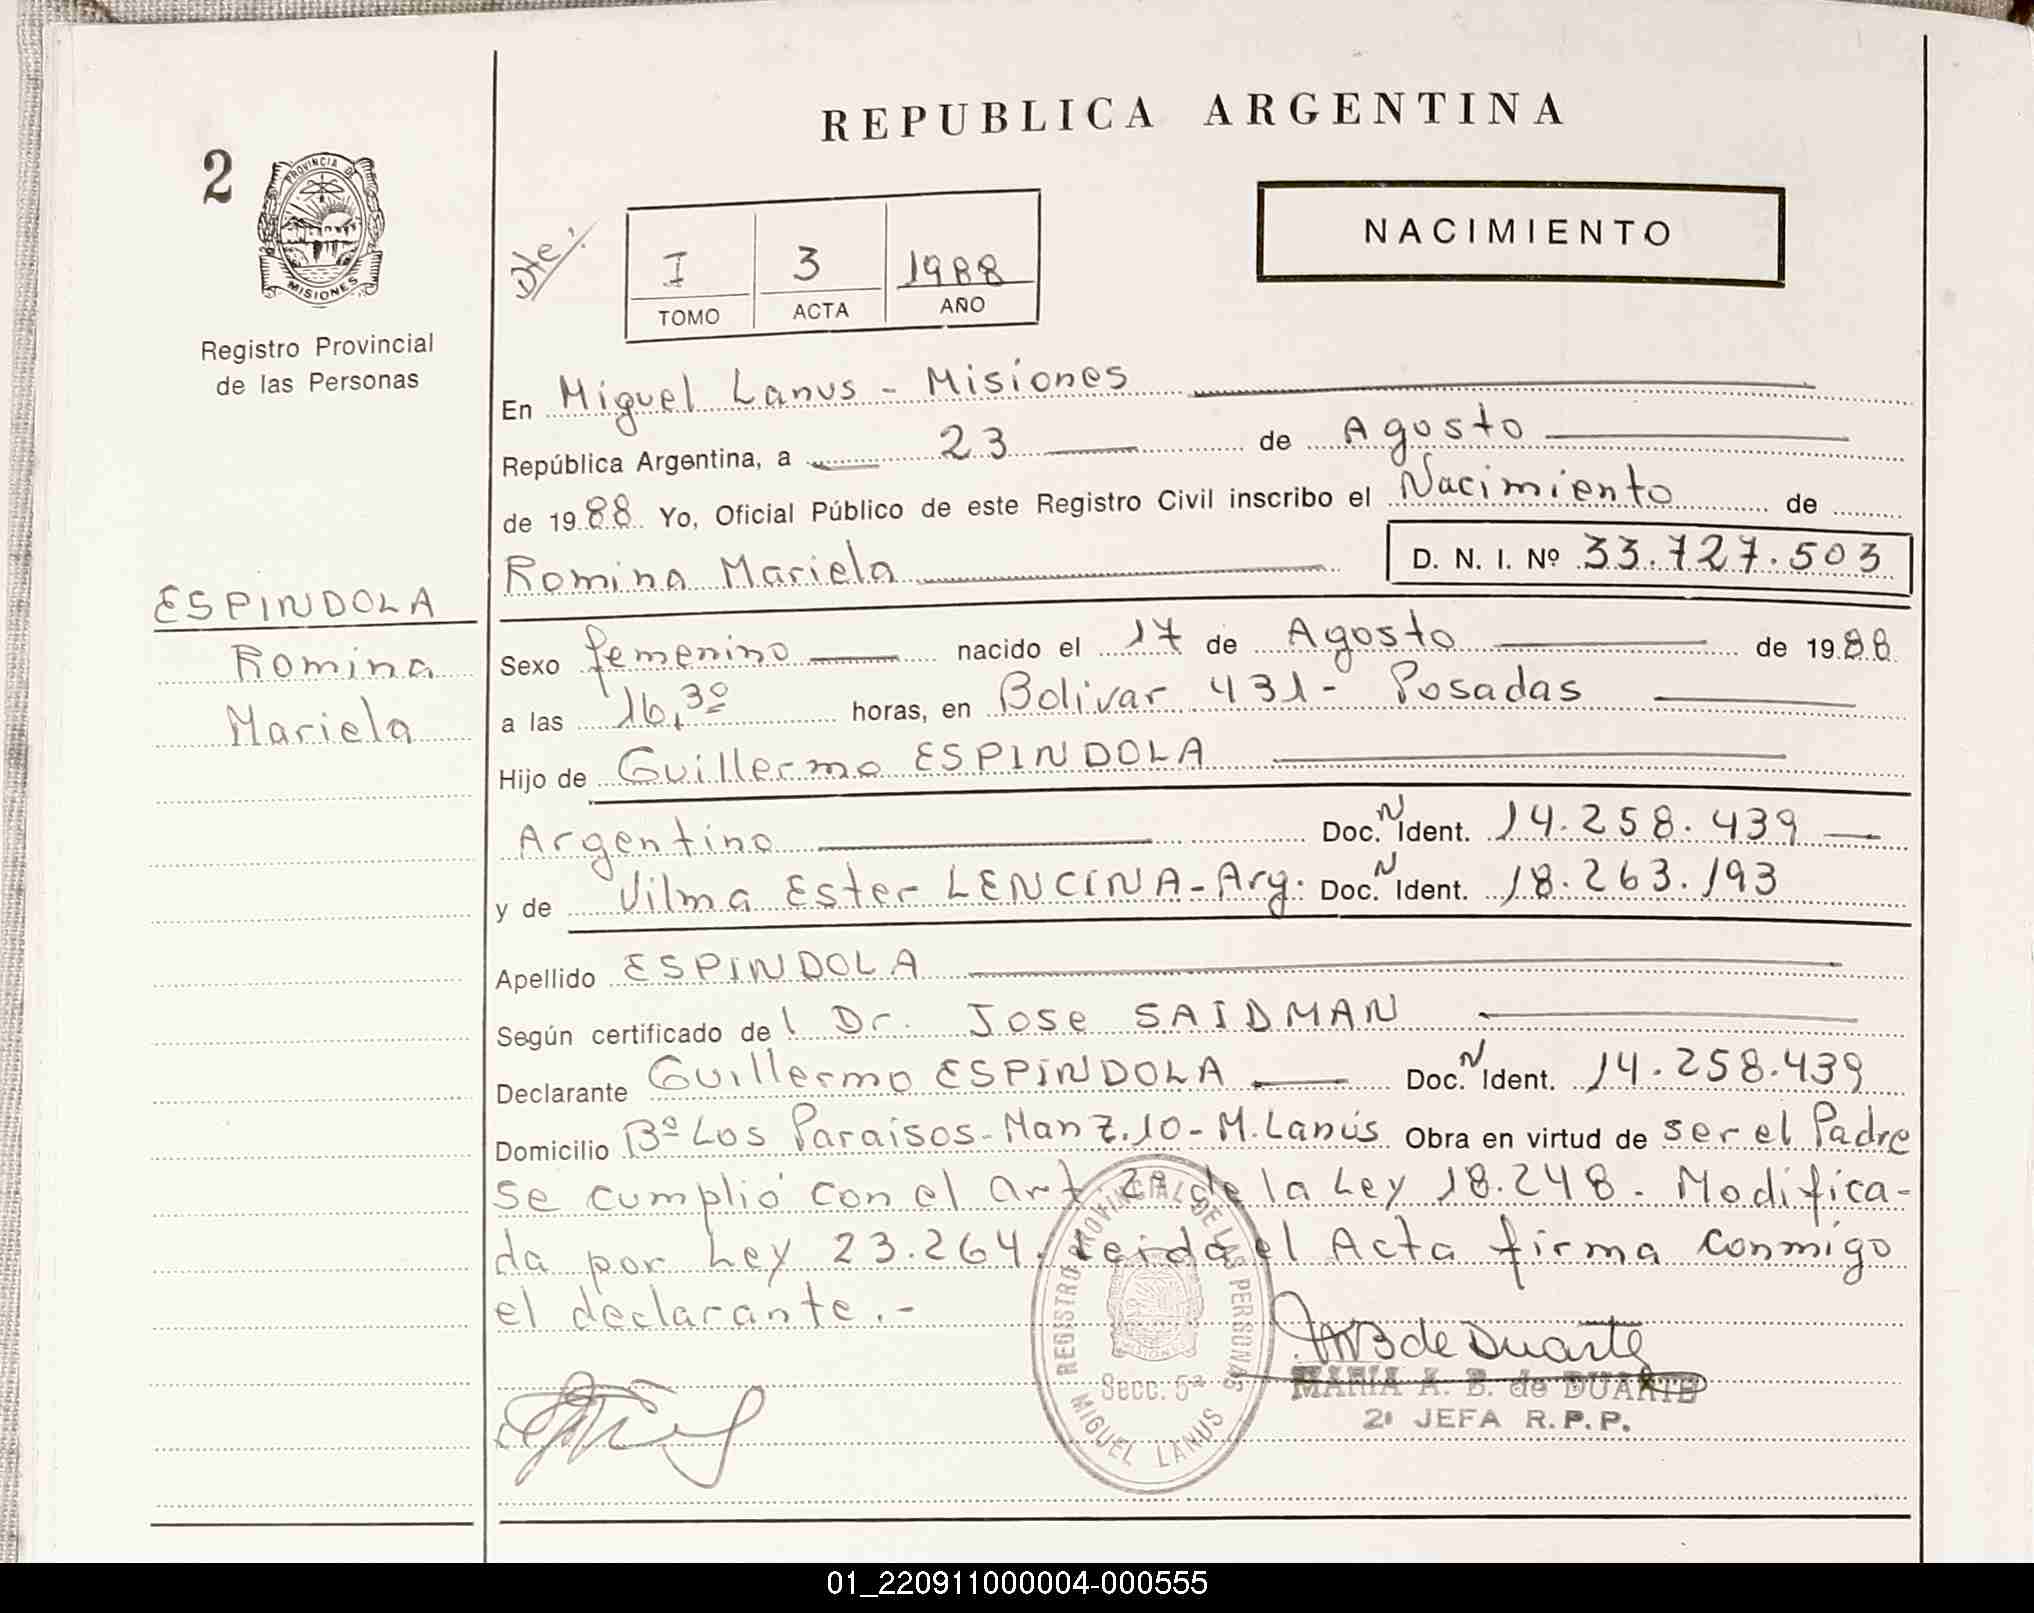 REPUBLICA ARGENTINA
2
PROVINCIA DE
MISIONES
Registro Provincial
de las Personas
Dte.
I 3 1988
TOMO ACTA AÑO
NACIMIENTO
En Miguel Lanus - Misiones
República Argentina, a 23 de Agosto
de 1988 Yo, Oficial Público de este Registro Civil inscribo el Nacimiento de
Romina Mariela D. N. I. Nº 33.727.503
ESPINDOLA
Romina
Mariela
Sexo femenino nacido el 17 de Agosto de 1988
a las 16,30 horas, en Bolivar 431 - Posadas
Hijo de Guillermo ESPINDOLA
Argentino Doc. N Ident. 14.258.439
y de Vilma Ester LENCINA - Arg. Doc. N Ident. 18.263.193
Apellido ESPINDOLA
Según certificado del Dr. Jose SAIDMAN
Declarante Guillermo ESPINDOLA Doc. N Ident. 14.258.439
Domicilio Bº Los Paraisos - Manz. 10 - M. Lanús Obra en virtud de ser el Padre
se cumplió con el art. 2º de la Ley 18.248. Modifica-
da por Ley 23.264. Leida el Acta firma conmigo
el declarante.-
REGISTRO PROVINCIAL DE LAS PERSONAS
Secc. 5ª
MIGUEL LANUS
MAB de Duarte
MARIA A. B. de DUARTE
2ª JEFA R. P. P.
01_220911000004-000555